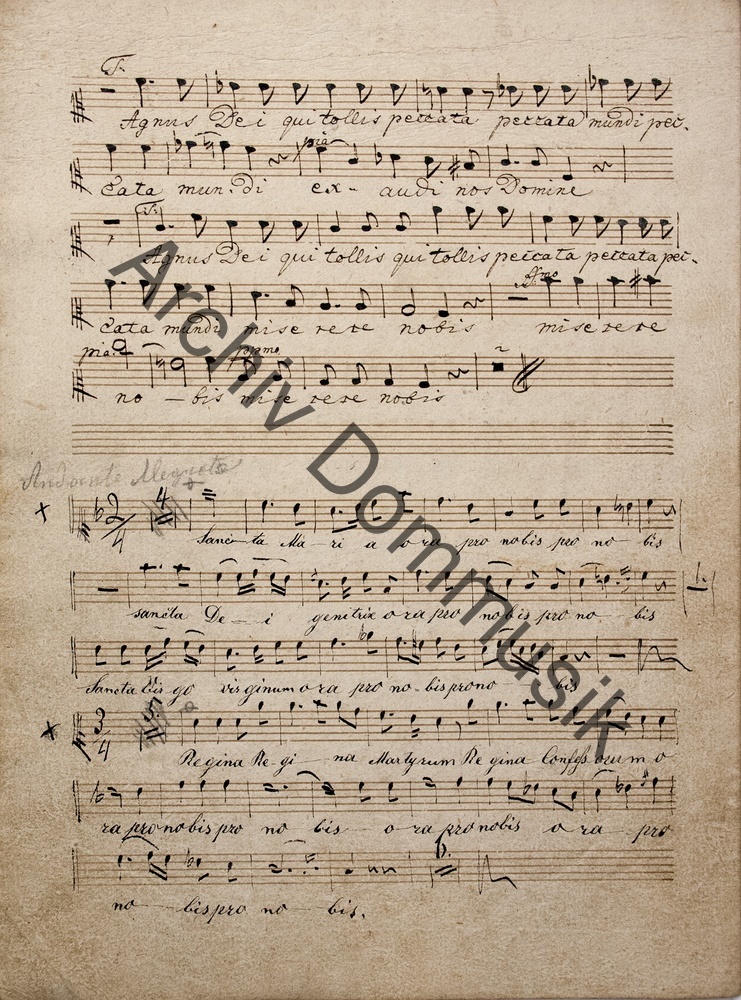 T.
Agnus Dei qui tollis peccata peccata mundi pec-
pia
cata mun-di ex- audi nos Domine
T.
Agnus Dei qui tollis qui tollis peccata peccata pec-
cata mundi mise rere nobis miserere
pia. ppmo
no - bis mise rere nobis
Andante Allegretto
2/4 4
Sanc-ta Ma-ri a o ra pro nobis pro no- bis
sancta De - i genitrix o ra pro nobis pro no- bis
Sancta Vir go virginum o ra pro no-bis pro no bis
3/4
Regina Re-gi - na Martyrum Regina Confess orum o
ra pro nobis pro no bis o ra pro nobis o ra pro
no- bis pro no bis.
Archiv Dommusik